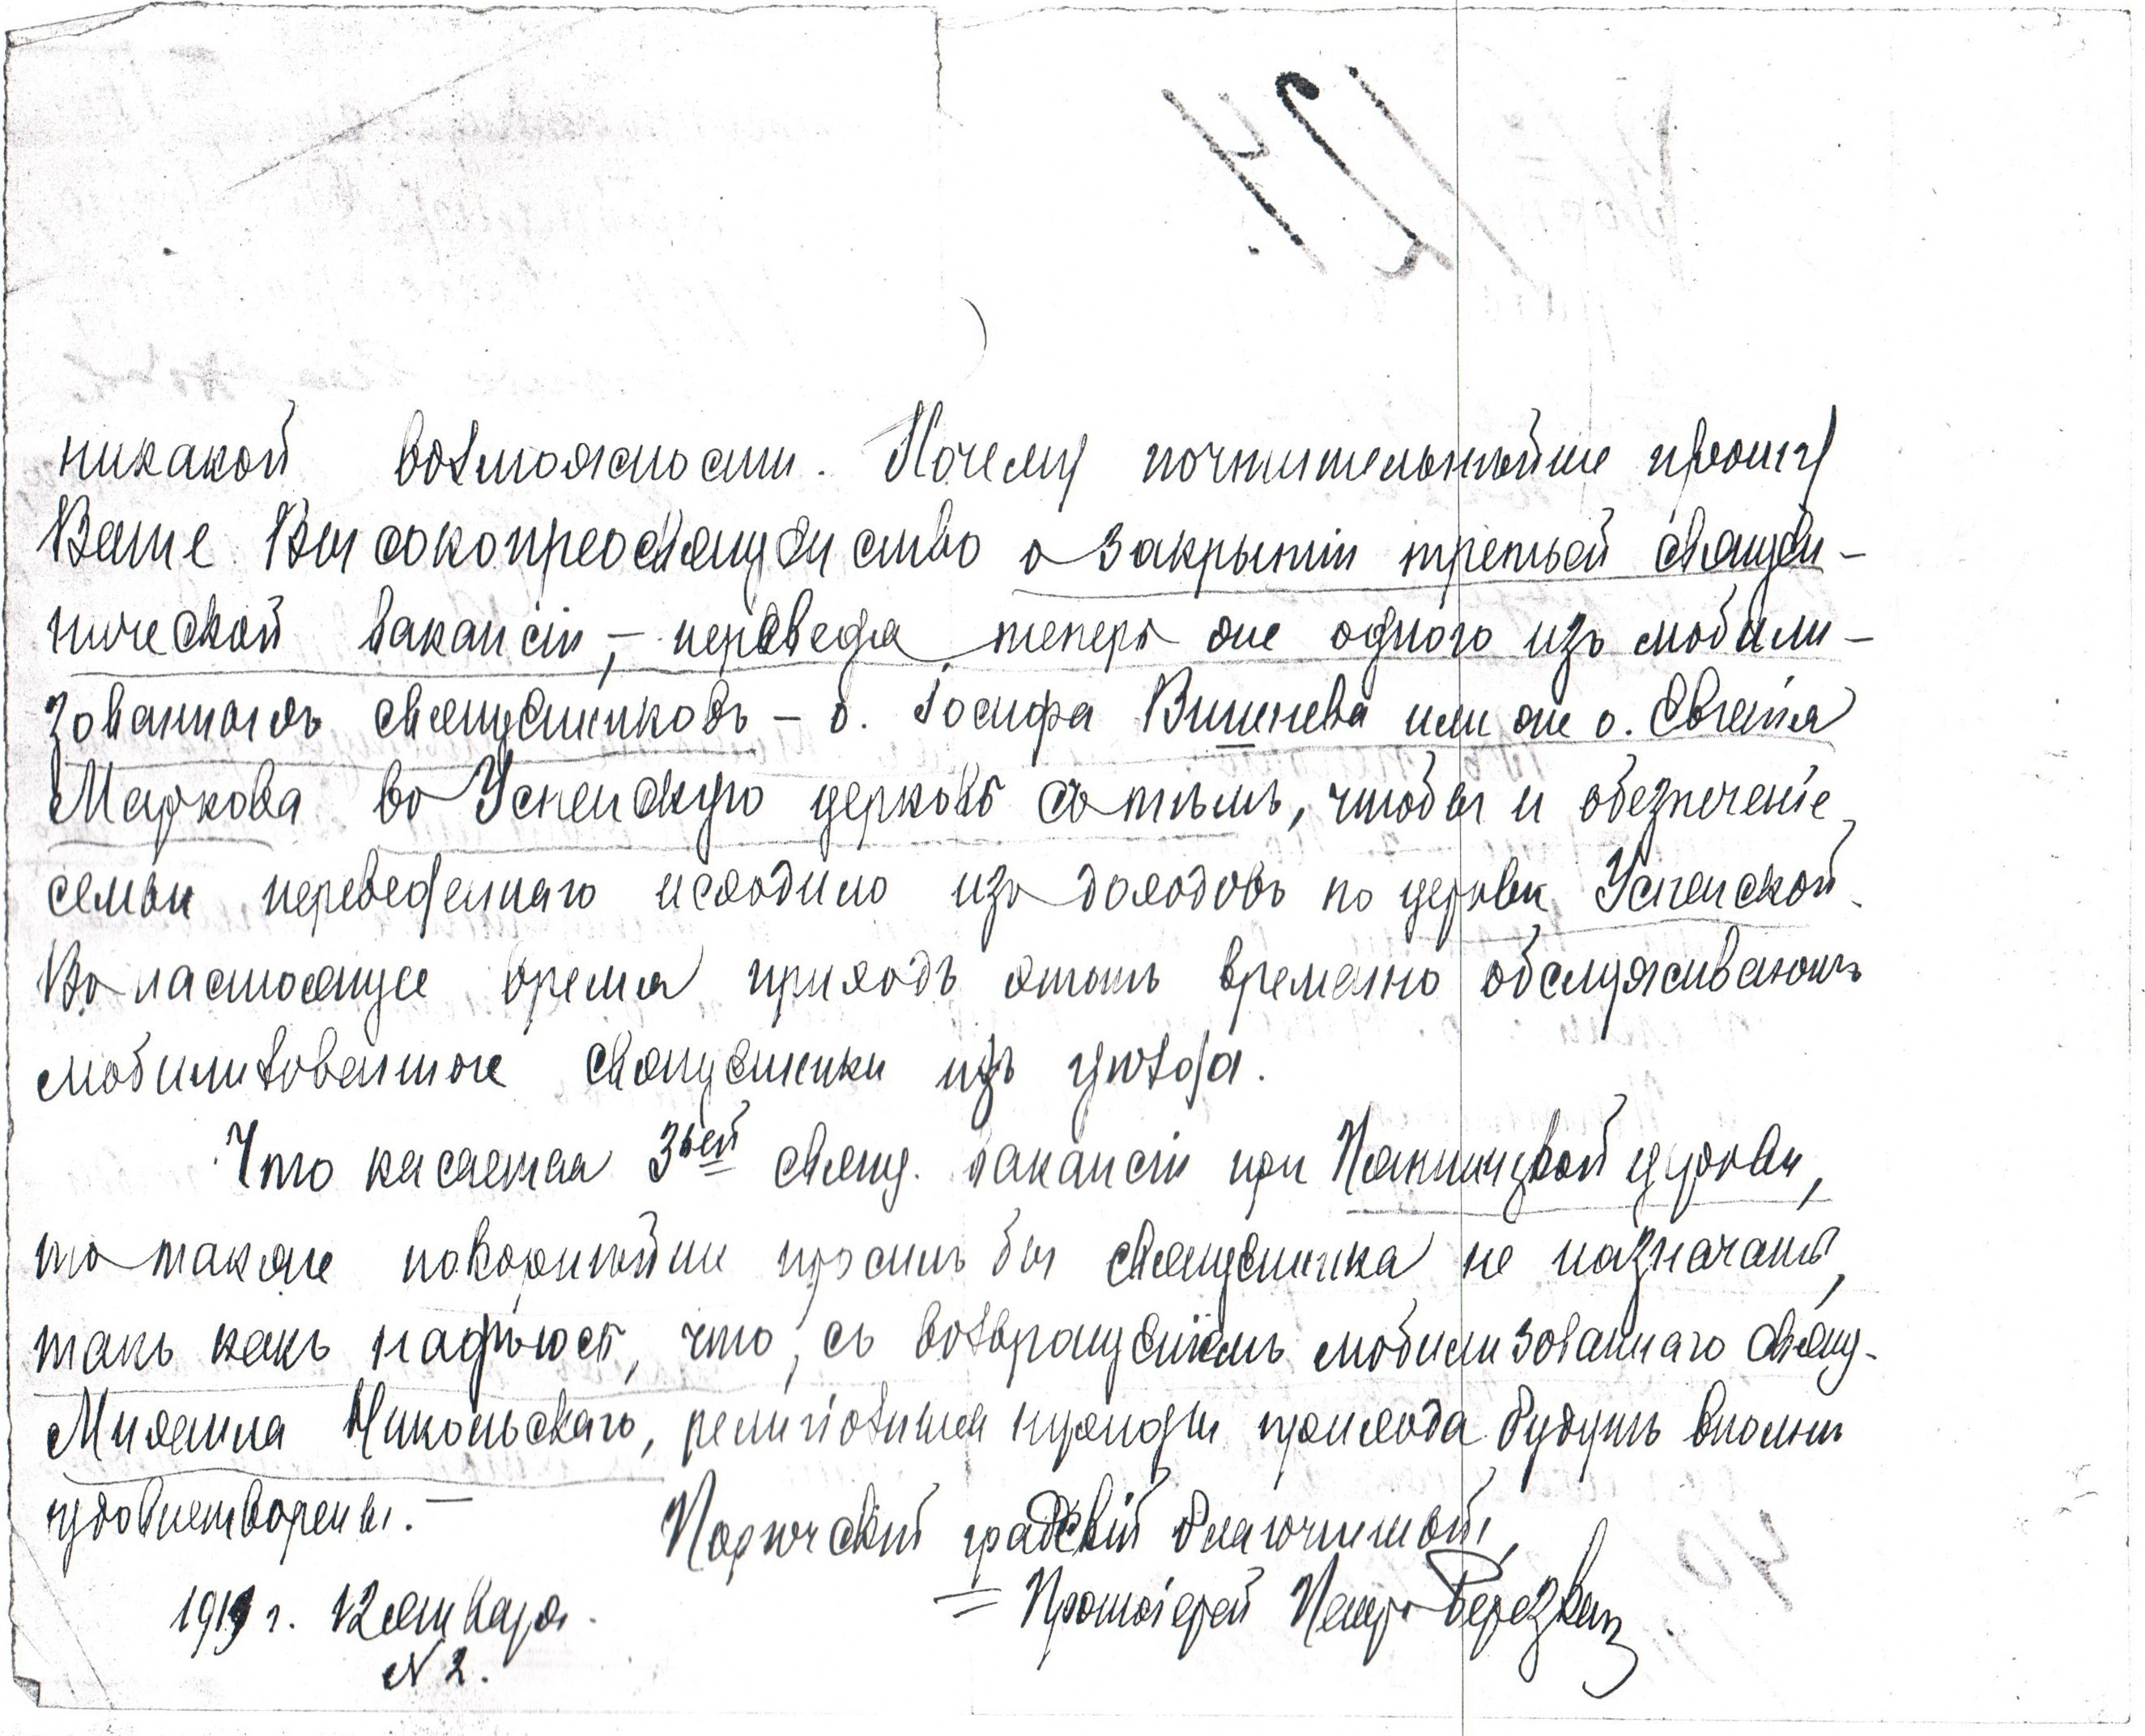 никакой возможности. Почему почтительнѣйше прошу
Ваше Высокопреосвященство о закрытіи третьей священ-
нической вакансіи, – переведя теперь же одного изъ мобили-
зованныхъ священниковъ – о. Іосифа Вишнева или же о. Евгенія
Маркова во Успенскую церковь съ тѣмъ, чтобы и обезпеченіе
семьи переведеннаго исходило изъ доходовъ по церкви Успенской.
Въ настоящее время приходъ этотъ временно обслуживаютъ
мобилизованные священники изъ уѣзда.
Что касается 3ьей свящ. вакансіи при Пятницкой церкви,
то также покорнѣйше просилъ бы священника не назначать,
такъ какъ надѣюсь, что, съ возвращеніемъ мобилизованнаго свящ.
Михаила Никольскаго, религіозныя нужды прихода будутъ вполнѣ
удовлетворены. –
градскій благочинный,
= Протоіерей Петръ Березкин
1919 г. 12 января.
N 2.